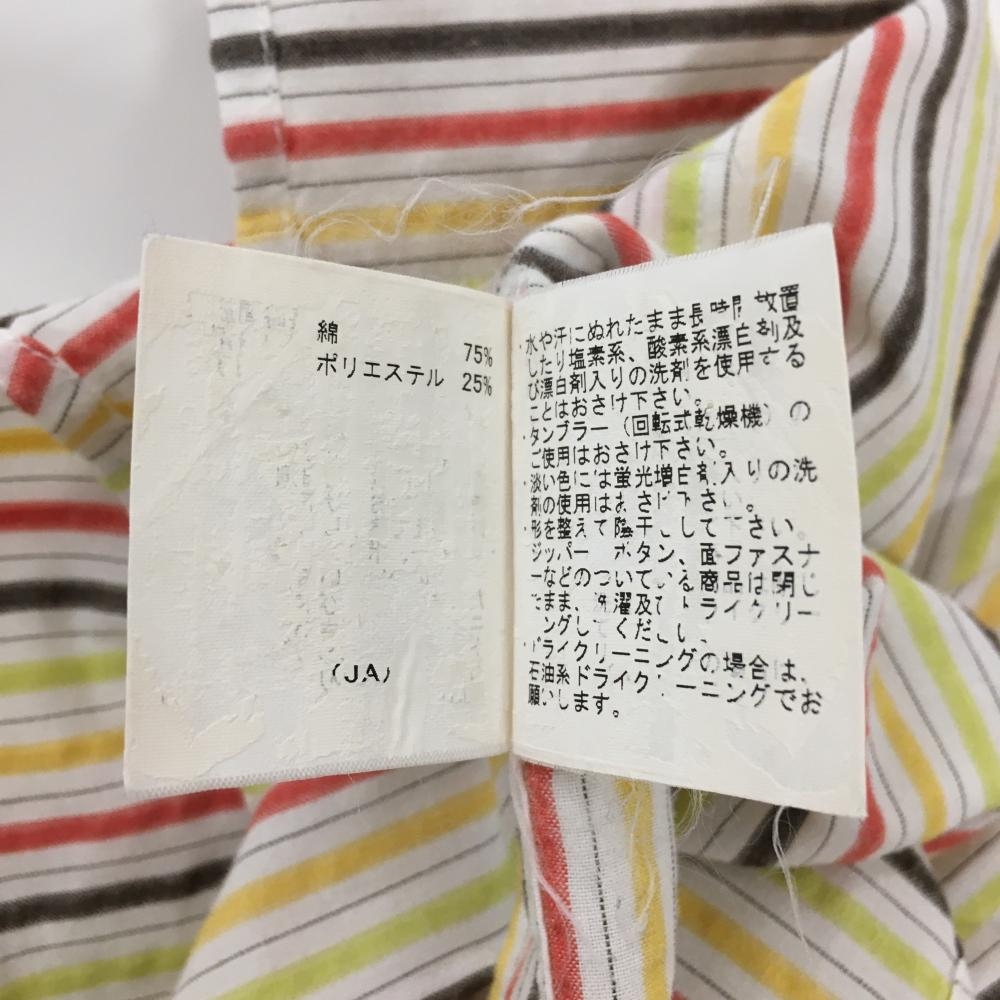 綿 75%
ポリエステル 25%
(JA)
・水や汗にぬれたまま長時間放置
したり塩素系、酸素系漂白剤及
び漂白剤入りの洗剤を使用する
ことはおさけ下さい。
・タンブラー（回転式乾燥機）の
ご使用はおさけ下さい。
・淡い色には蛍光増白剤入りの洗
剤の使用はおさけ下さい。
・形を整えて陰干しして下さい。
・ジッパー ボタン、面ファスナ
ーなどのついている商品は閉じ
たまま、洗濯及びドライクリー
ニングしてください。
・ドライクリーニングの場合は、
石油系ドライクリーニングでお
願いします。